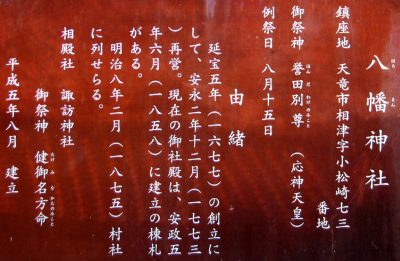 八幡神社
はち まん
鎮座地 天竜市相津字小松崎七三
番地
御祭神 誉田別尊 （応神天皇）
ほん だ わけのみこと
例祭日 八月十五日
由緒
延宝五年（一六七七）の創立に
して、安永二年十二月（一七七三
）再営。現在の御社殿は、安政五
年六月（一八五八）に建立の棟札
がある。
明治八年二月（一八七五）村社
に列せらる。
相殿社 諏訪神社
御祭神 健御名方命
たけ み な かたのみこと
平成五年八月 建立